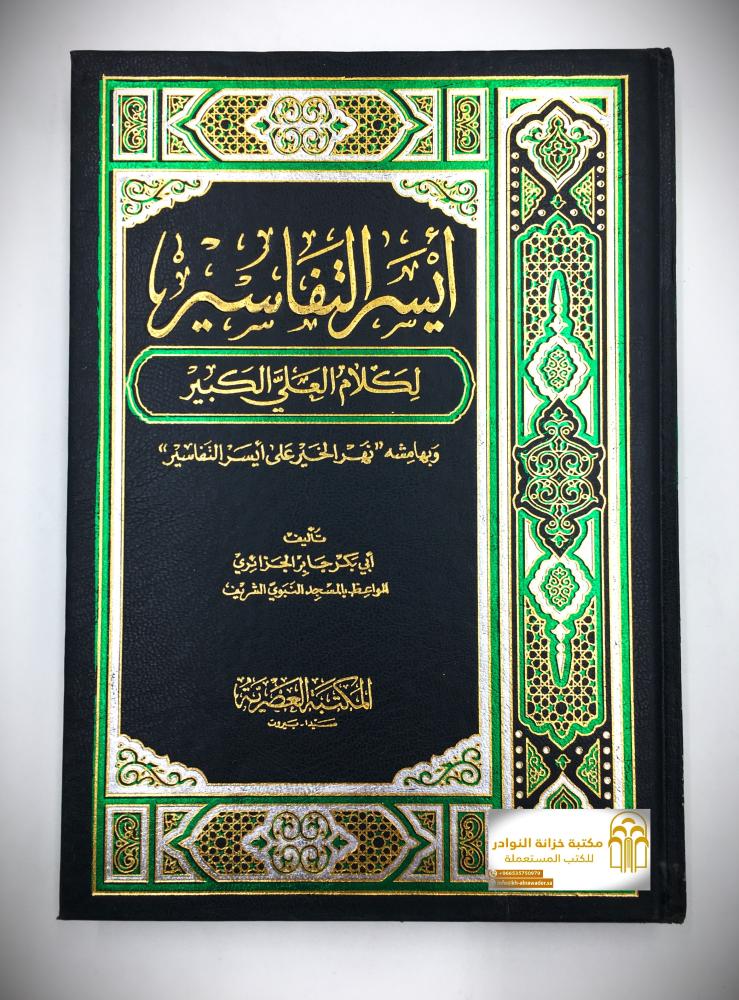 أيسر التفاسير
لكلام العلي الكبير
وبهامشه "نهر الخير على أيسر التفاسير"
تأليف
أبي بكر جابر الجزائري
الواعظ بالمسجد النبوي الشريف
المكتبة العصرية
صيدا - بيروت
مكتبة خزانة النوادر
للكتب المستعملة
+966535750979
info@kh-alnawader.sa